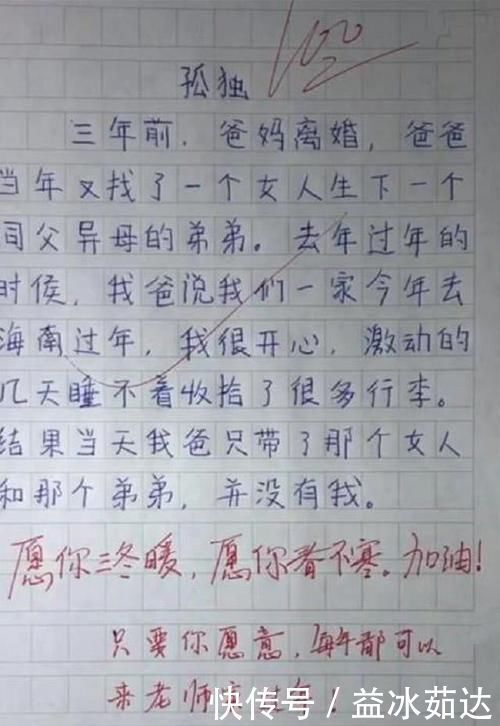 100
孤独
三年前．爸妈离婚，爸爸
当年又找了一个女人生下一个
同父异母的弟弟。去年过年的
时候，我爸说我们一家今年去
海南过年，我很开心，激动的
几天睡不着收拾了很多行李。
结果当天我爸只带了那个女人
和那个弟弟，并没有我。
愿你三冬暖，愿你春不寒。加油！
只要你愿意，每年都可以
来老师家过年！
快传号／益冰茹达